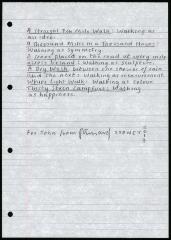 A Straight Ten Mile Walk: Walking as
an idea.
A Thousand Miles in a Thousand Hours:
Walking as Symmetry.
Stones placed on the road at every mile
across Ireland: Walking as Sculpture.
A Dry Walk between one shower of rain
and the next: Walking as measurement
White Light Walk: Walking as Colour
Thirty Seven Campfires: Walking
as happiness.
For John from Richard SYDNEY